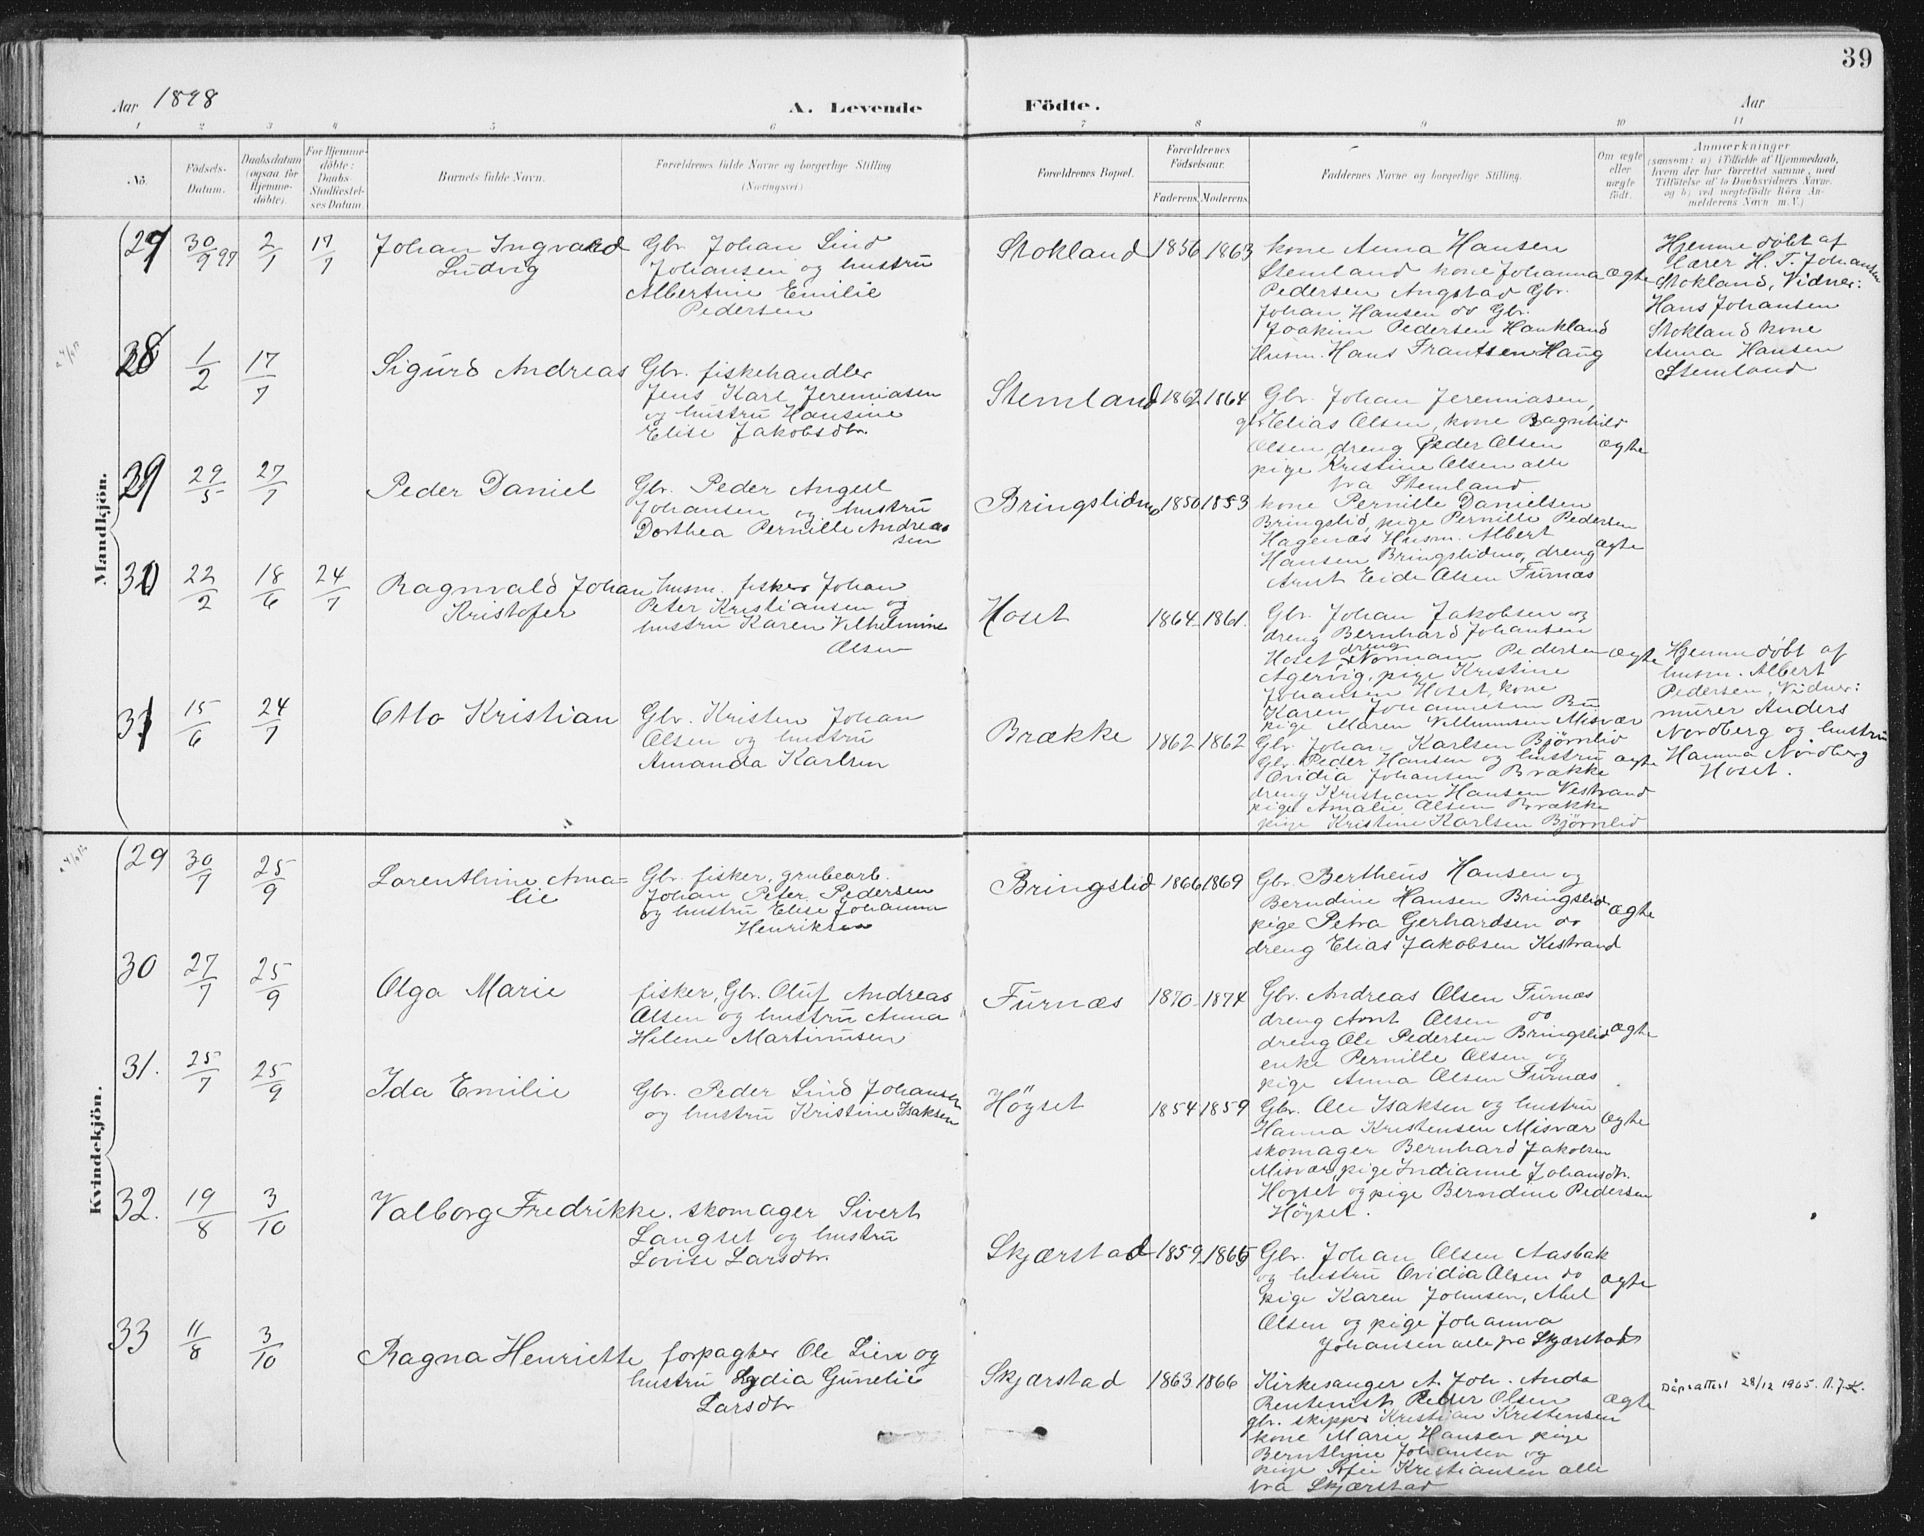 39
Aar 1898
A. Levende Födte.
Aar
1 2 3 4 5 6 7 8 9 10 11
No.
Födsels-
Datum.
Daabsdatum
(ogsaa for
Hjemme-
döbte).
For Hjemme-
döbte:
Daabs-
Stadfæstel-
ses Datum.
Barnets fulde Navn.
Forældrenes fulde Navne og borgerlige Stilling
(Næringsvei.)
Forældrenes Bopæl.
Forældrenes
Födselsaar.
Faderens. Moderens.
Faddernes Navne og borgerlige Stilling.
Om ægte
eller
uægte
födt.
Anmærkninger
(saasom: a) i Tilfælde af Hjemmedaab,
hvem der har forrettet samme, med
Tilföielse af to Daabsvidners Navne,
og b) ved uægtefödte Börn An-
melderens Navn m. V.)
Mandkjön.
27 30/9 97 2/1 17/7
Johan Ingvald
Ludvig
Gbr. Johan Lind
Johansen og hustru
Albertine Emilie
Pedersen
Stokland 1856 1863
kone Anna Hansen
Stemland kone Johanna
Pedersen Angstad Gbr.
Johan Hansen do Gbr.
Joakim Pedersen Haukland
Husm. Hans Frantsen Haug
ægte
Hjemmedøbt af
Lærer H. T. Johansen
Stokland, Vidner:
Hans Johansen
Stokland kone
Anna Hansen
Stemland
28 1/2 17/7
Sigurd Andreas
Gbr. fiskehandler
Jens Karl Jeremiasen
og hustru Hansine
Elise Jakobsdtr.
Stemland 1862 1864
Gbr. Johan Jeremiasen,
gbr Elias Olsen, kone Ragnhild
Olsen dreng Peder Olsen
pige Kristine Olsen alle
fra Stemland
ægte
29 29/5 27/7
Peder Daniel
Gbr. Peder Angel
Johansen og hustru
Dorthea Pernille Andrea
sen
Bringslidmo 1850 1853
kone Pernille Danielsen
Bringslid, pige Pernille Pedersen
Hagenæs Husm. Albert
Hansen Bringslidmo, dreng
Arnt Eide Olsen Furnæs
ægte
30 22/2 18/6 24/7
Ragnvald Johan
Kristofer
husm. fisker Johan
Peter Kristiansen og
hustru Karen Vilhelmine
Olsen
Hoset 1864 1861.
Gbr. Johan Jakobsen og
dreng Bernhard Johansen
Hoset, dreng Normann Pedersen
Agervig, pige Kristine
Johansen Hoset, kone
Karen Johannesen Bu
pige Maren Vilhumsen Misvær
ægte
Hjemmedøbt af
husm. Albert
Pedersen, Vidner:
murer Anders
Nordberg og hustru
Hanna Nordberg
Hoset.
31 15/6 24/7
Otto Kristian
Gbr. Kristen Johan
Olsen og hustru
Amanda Karlsen
Brække 1862 1862
Gbr. Johan Karlsen Bjørnlid
Gbr. Peder Hansen og hustru
Ovidia Johansen Brække
dreng Kristian Hansen Vestvand
pige Amalie Olsen Brække
pige Kristine Karlsen Bjørnlid
ægte
Kvindekjön.
29 30/7 25/9
Lorenthine Ama=
lie
Gbr. fisker, grubearb.
Johan Peter Pedersen
og hustru Elise Johanna
Henriksen
Bringslid 1866 1869
Gbr. Bertheus Hansen og
Berndine Hansen Bringslid
pige Petra Gerhardsen do
dreng Elias Jakobsen Kistrand
ægte
30 27/7 25/9
Olga Marie
fisker, Gbr. Oluf Andreas
Olsen og hustru Anna
Helene Martinusen
Furnæs 1870 1874
Gbr. Andreas Olsen Furnæs
dreng Arnt Olsen do
dreng Ole Pedersen Bringslid
enke Pernille Olsen og
pige Anna Olsen Furnæs
ægte
31. 25/7 25/9
Ida Emilie
Gbr. Peder Lind Johansen
og hustru Kristine Isaksen
Høgset 1854 1859
Gbr. Ole Isaksen og hustru
Hanna Kristensen Misvær
skomager Bernhard Jakobsen
Misvær, pige Indianne Johansdtr.
Høgset og pige Berndine Pedersen
Høgset.
ægte
32. 19/8 3/10
Valborg Fredrikke.
skomager Sivert
Langset og hustru
Lovise Larsdtr.
Skjærstad 1859 1865
Gbr. Johan Olsen Aasbak
og hustru Ovidia Olsen do
pige Karen Johnsen, Abel
Olsen og pige Johanna
Johansen alle fra Skjærstad
ægte
33 11/8 3/10
Ragna Henriette
forpagter Ole Lien og
hustru Lydia Gunelie
Larsdtr
Skjærstad 1863 1866
Kirkesanger A. Joh. Anda
Rentenist Peder Olsen
gbr. skipper Kristian Kristensen
kone Marie Hansen pige
Bernthine Johansen og
pige Sofie Kristiansen alle
fra Skjærstad
ægte
Dåpsattest 28/12 1965. A.J.K.